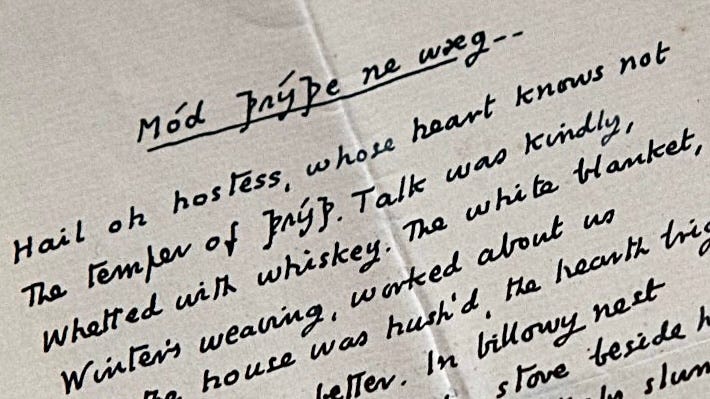 Mód Þrýþe ne wæg--
Hail oh hostess, whose heart knows not
The temper of Þrýþ. Talk was kindly,
Whetted with whiskey. The white blanket,
Winter's weaving, worked about us
house was hush'd, the hearth
In billowy nest
stove beside